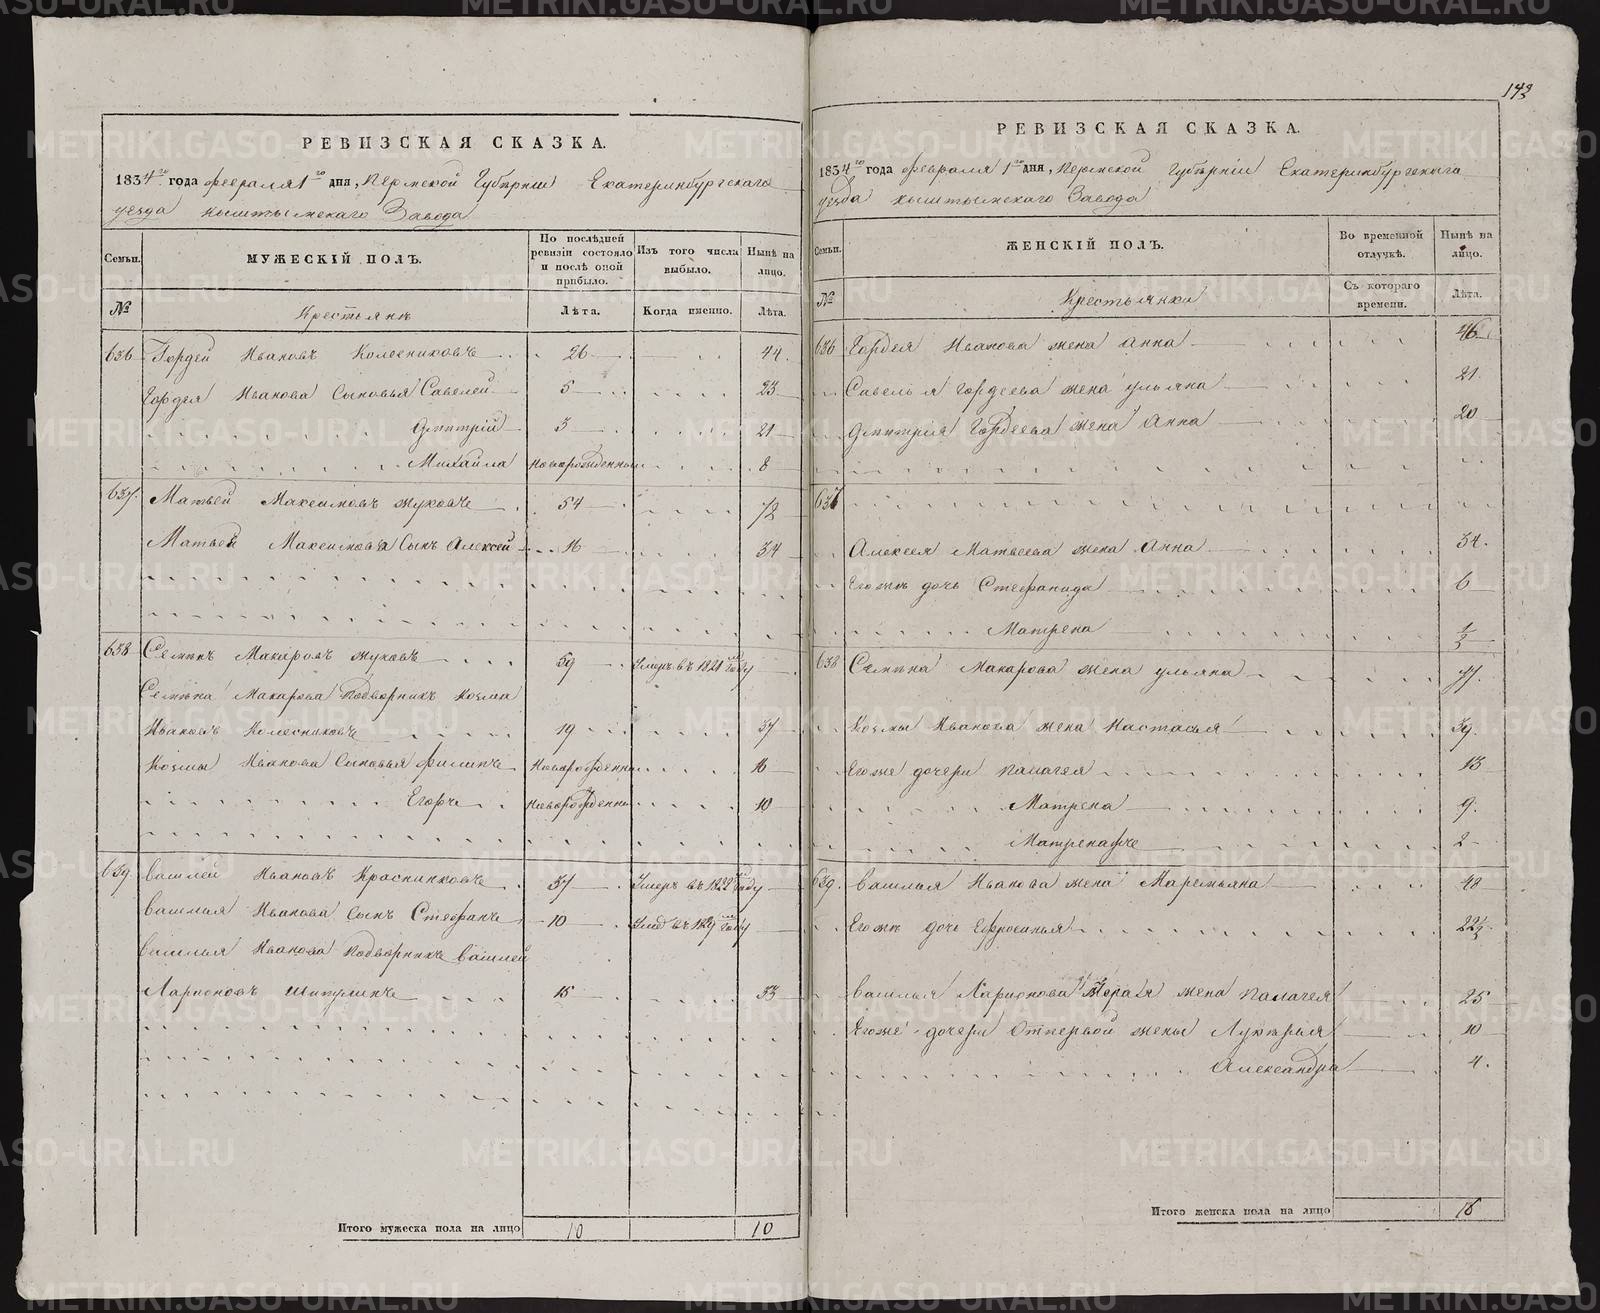 РЕВИЗСКАЯ СКАЗКА.
1834го года февраля 1го дня, Пермской Губернiи Екатеринбургскаго
уезда Кыштымскаго Завода
Семьи. МУЖЕСКІЙ ПОЛЪ. По послѣдней ревизіи состояло и послѣ оной прибыло. Изъ того числа выбыло. Нынѣ на лицо.
№ Крестьяне Лѣта. Когда именно. Лѣта.
636 Гордей Ивановъ Колесниковъ 26 44.
Гордея Иванова Сыновья Савелей 5 23
Дмитрiй 3 21
Михайла новорожденный 8
637. Матвей Максимовъ Жуковъ 54 72
Матвея Максимова Сынъ Алексей 16 34
638 Семенъ Макаровъ Жуковъ 59 Умеръ въ 1821м году
Семена Макарова Подворникъ Козма
Ивановъ Колесниковъ 19 37
Козмы Иванова Сыновья Филипъ Новорожденный 16
Егоръ Новорожденный 10
639. Василей Ивановъ 37 Умеръ въ году
Василья Иванова Сынъ Стефанъ 10 въ году
Василья Иванова Подворникъ Василей
Ларионовъ 15 33
Итого мужеска пола на лицо 10 10
143
РЕВИЗСКАЯ СКАЗКА.
1834го года февраля 1го дня, Пермской Губернiи Екатеринбургскаго
уезда Кыштымскаго Завода
Семьи. ЖЕНСКІЙ ПОЛЪ. Во временной отлучкѣ. Нынѣ на лицо.
№ Крестьянки Съ котораго времени. Лѣта.
636 Гордея Иванова жена Анна 46
Савелья Гордеева жена Ульяна 21.
Дмитрия Гордеева жена Анна 20
637
Алексея Матвеева жена Анна 34.
Егоже дочь Стефанида 6
Матрена 1/2
638 Семена Макарова жена Ульяна 77.
Козмы Иванова жена Настасья 39.
Егоже дочери Палагея 13
Матрена 9.
Матренаже 2
639. Василья Иванова жена Маремьяна 48
Егоже дочь Ефросинья 22½
Василья Ларионова 2я жена Палагея 25
Егоже дочери Отпервой жены Лукерья 10
Александра 4.
Итого женска пола на лицо 16